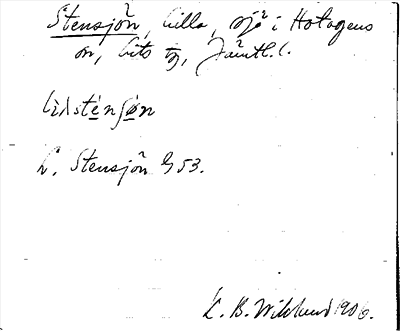 Stensjön, Lilla, sjö i Hotagens
sn, Lits tg, Jämtl. l.
L. Stensjön G 53.
K. B. Wiklund 1906.